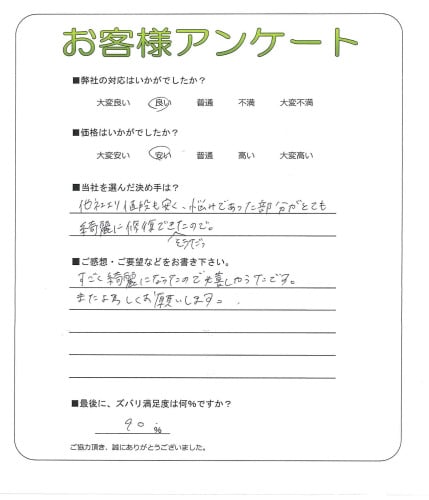 お客様アンケート
■弊社の対応はいかがでしたか?
大変良い 良い 普通 不満 大変不満
■価格はいかがでしたか?
大変安い 安い 普通 高い 大変高い
■当社を選んだ決め手は?
他社より値段も安く、悩みであった部分がとても
綺麗に修復できたので。
そうだっ
■ご感想・ご要望などをお書き下さい。
すごく綺麗になったので嬉しかったです。
またよろしくお願いします。
■最後に、ズバリ満足度は何%ですか?
90 %
ご協力頂き、誠にありがとうございました。